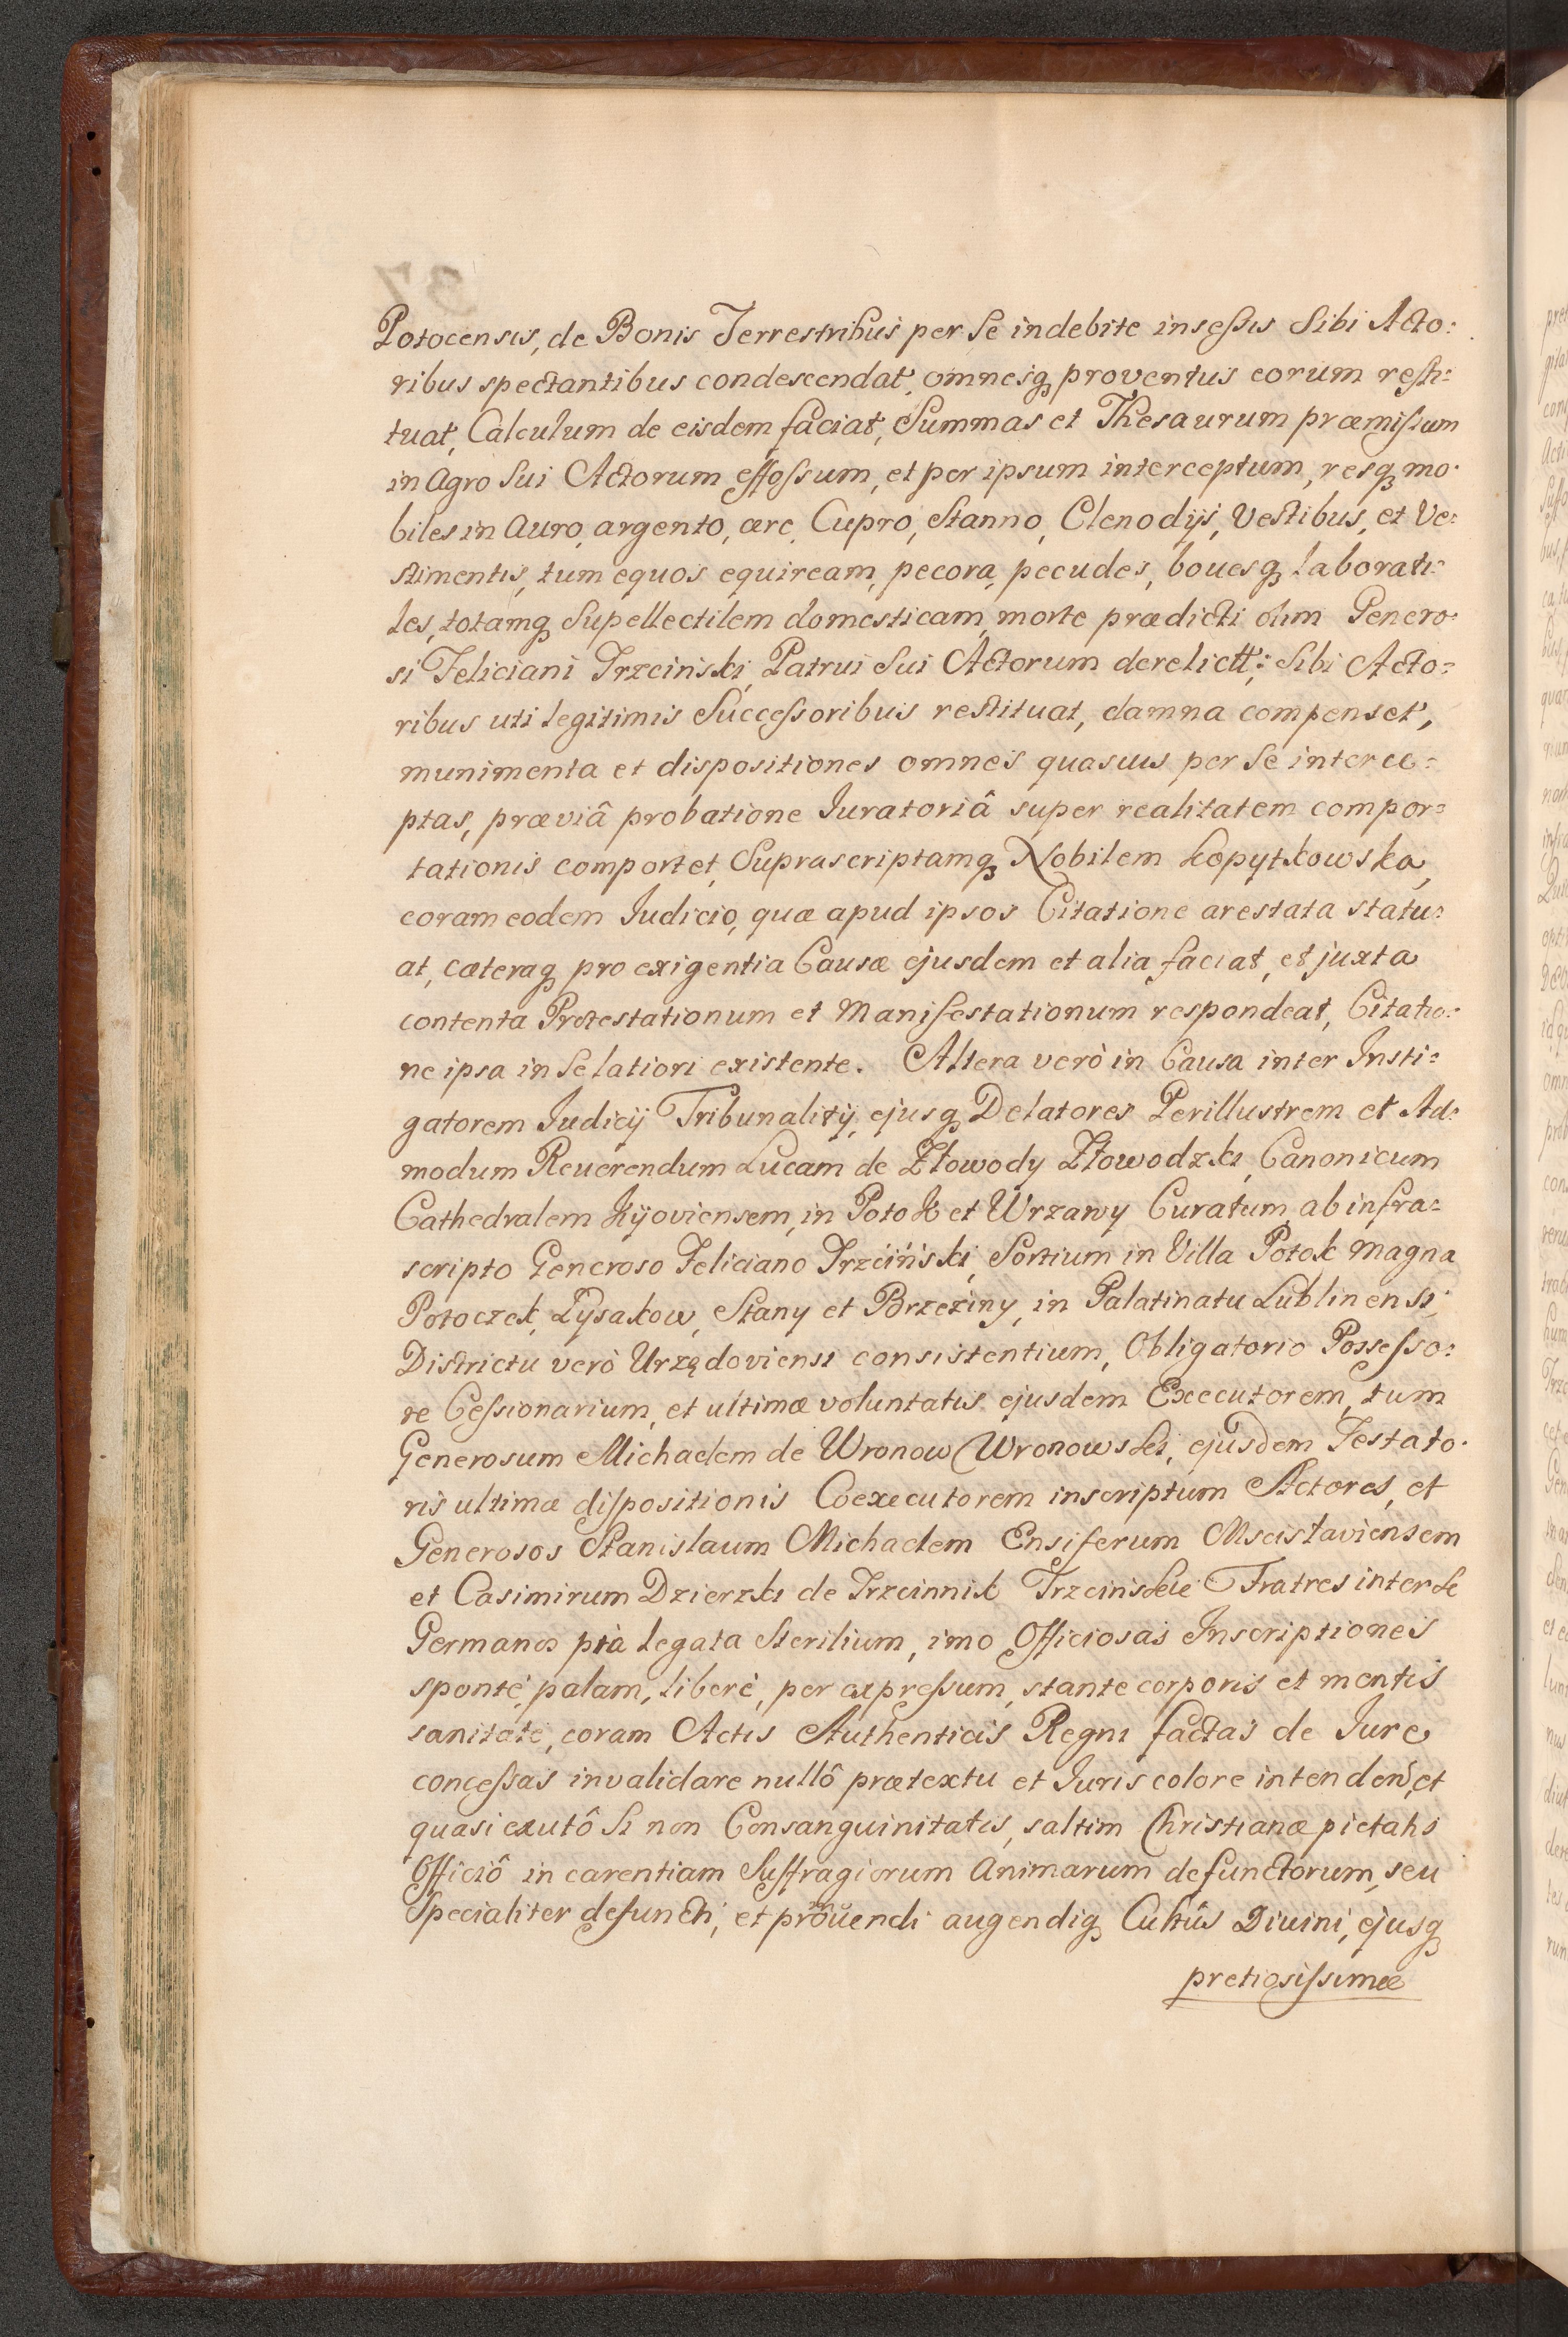 Potocensis, de Bonis Terrestribus per Se indebite insessis Sibi Acto=
ribus spectantibus condescendat, omnesq proventus eorum resti=
tuat, Calculum de eisdem faciat, Summas et Thesaurum præmissum
in Agro Sui Actorum effossum, et per ipsum interceptum, resq mo=
biles in Auro, argento, ære, Cupro, Stanno, Clenodijs, Vestibus, et Ve=
stimentis, tum equos equiream, pecora, pecudes, bouesq laborati=
les, totamq Supellectilem domesticam, morte prædicti olim Genero=
si Feliciani Trzcinski, Patrui Sui Actorum derelict: Sibi Acto=
ribus uti legitimis Successoribus restituat, damna compenset,
munimenta et dispositiones omnes quasuis per Se interce=
ptas, præviâ probatione Iuratoriâ super realitatem compor=
tationis comportet, Suprascriptamq Nobilem Kopytkowska,
coram eodem Iudicio, quæ apud ipsos Citatione arestata statu=
at, cæteraq pro exigentia Causæ ejusdem et alia faciat, et juxta
contenta Protestationum et Manifestationum respondeat, Citatio=
ne ipsa in Se latiori existente. Altera verò in Causa inter Insti=
gatorem Iudicij Tribunalitij, ejusq Delatores Perillustrem et Ad=
modum Reuerendum Lucam de Złowody Złowodzki, Canonicum
Cathedralem Kijoviensem, in Potok et Wrzawy Curatum, ab infra=
scripto Generoso Feliciano Trzciński, Sortium in Villa Potok magna
Potoczek, Łysakow, Stany et Brzeziny, in Palatinatu Lublinensi,
Districtu verò Urzędoviensi consistentium, Obligatorio Possesso=
re Cessionarium, et ultimæ voluntatis ejusdem Executorem, tum
Generosum Michaelem de Wronow Wronowski, ejusdem Testato=
ris ultimæ dispositionis Coexecutorem inscriptum Actores, et
Generosos Stanislaum Michaelem Ensiferum Mscislaviensem
et Casimirum Dzierzki de Trzcinnik Trzcinskie Fratres inter Se
Germanos pia legata Sterilium, imo Officiosas Inscriptiones
sponte, palam, liberè, per expressum, stante corporis et mentis
sanitate, coram Actis Authenticis Regni factas de Iure
concessas invalidare nullô prætextu et Iuris colore intenden, et
quasi exutô Si non Consanguinitatis, saltim Christianæ pietatis
Officiô in carentiam Suffragiorum Animarum defunctorum, seu
Specialiter defuncti, et prouendi augendiq Cultûs Diuini, ejusq
pretiosissimæ